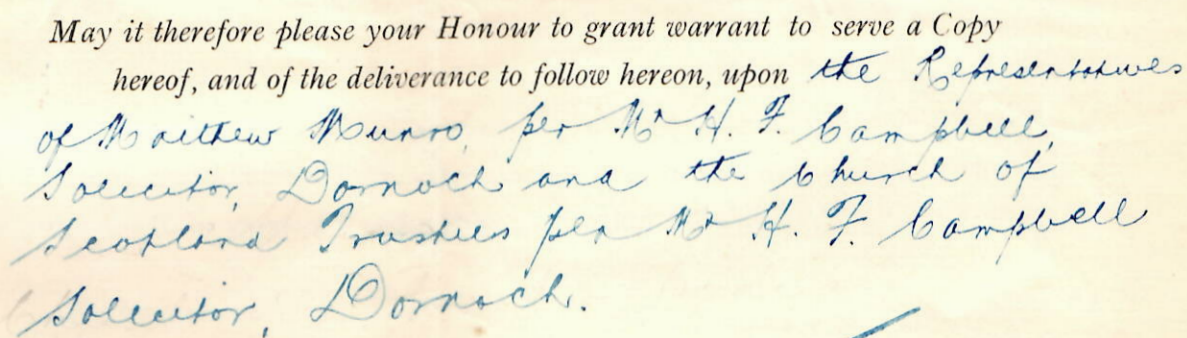 May it therefore please your Honour to grant warrant to serve a Copy
hereof, and of the deliverance to follow hereon, upon the Representatives
of Matthew Munro, per Mr H. F. Campbell,
Solicitor, Dornoch and the Church of
Scotland Trustees per Mr H. F. Campbell
Solicitor, Dornoch.